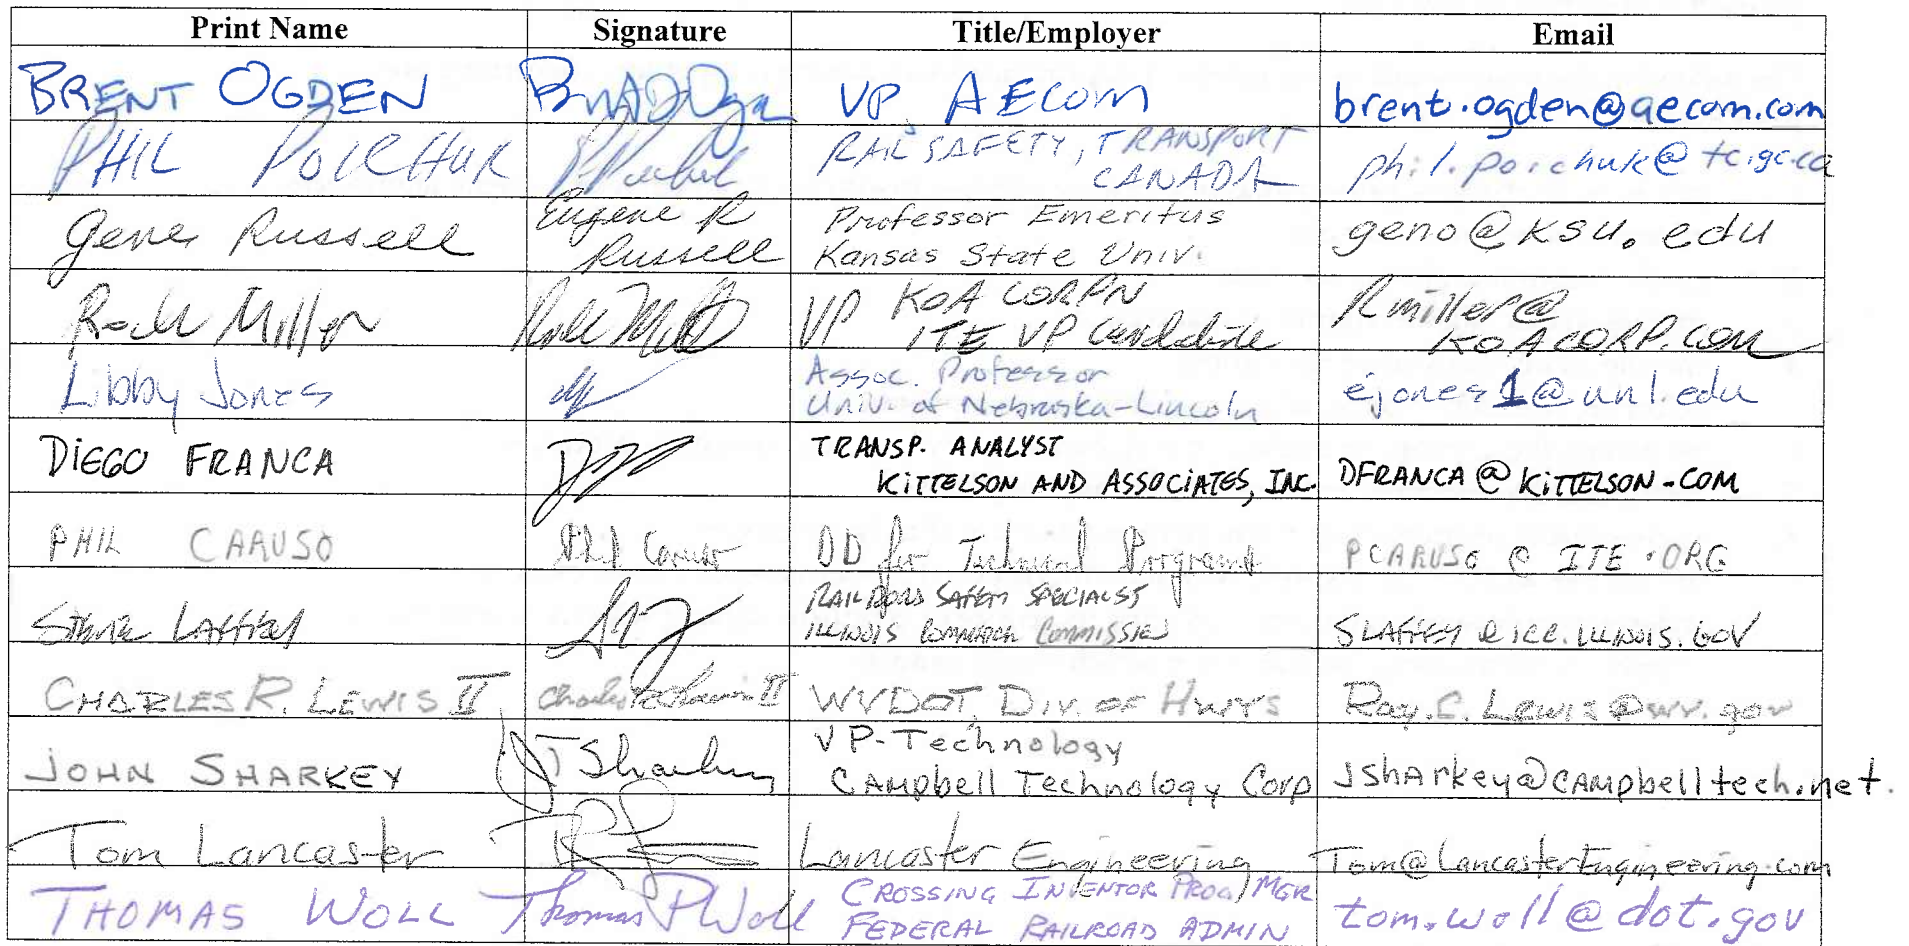 Print Name Signature Title/Employer Email
BRENT OGDEN VP, AECOM brent.ogden@aecom.com
PHIL POICHUK RAIL SAFETY, TRANSPORT
CANADA phil.poichuk@tc.gc.ca
Gene Russell Eugene R
Russell Professor Emeritus
Kansas State Univ. geno@ksu.edu
Rock Miller VP KOA CORPN
ITE VP Candidate Rmiller@
KOACORP.COM
Libby Jones Assoc. Professor
Univ. of Nebraska-Lincoln ejones1@unl.edu
DIEGO FRANCA TRANSP. ANALYST
KITTELSON AND ASSOCIATES, INC. DFRANCA@KITTELSON.COM
PHIL CARUSO Phil Caruso DD for Technical Programs PCARUSO @ ITE.ORG
STEVE LAFFEY RAILROAD SAFETY SPECIALIST
ILLINOIS COMMERCE COMMISSION SLAFFEY@ICC.ILLINOIS.GOV
CHARLES R. LEWIS II WVDOT, DIV. OF HWYS Ray.C.Lewis@wv.gov
JOHN SHARKEY J Sharkey VP-Technology
CAMpbell Technology Corp JshArkey@CAMpbelltech.net.
Tom Lancaster Lancaster Engineering Tom@LancasterEngineering.com
THOMAS WOLL Thomas P Woll CROSSING INVENTOR PROG MGR
FEDERAL RAILROAD ADMIN tom.woll@dot.gov